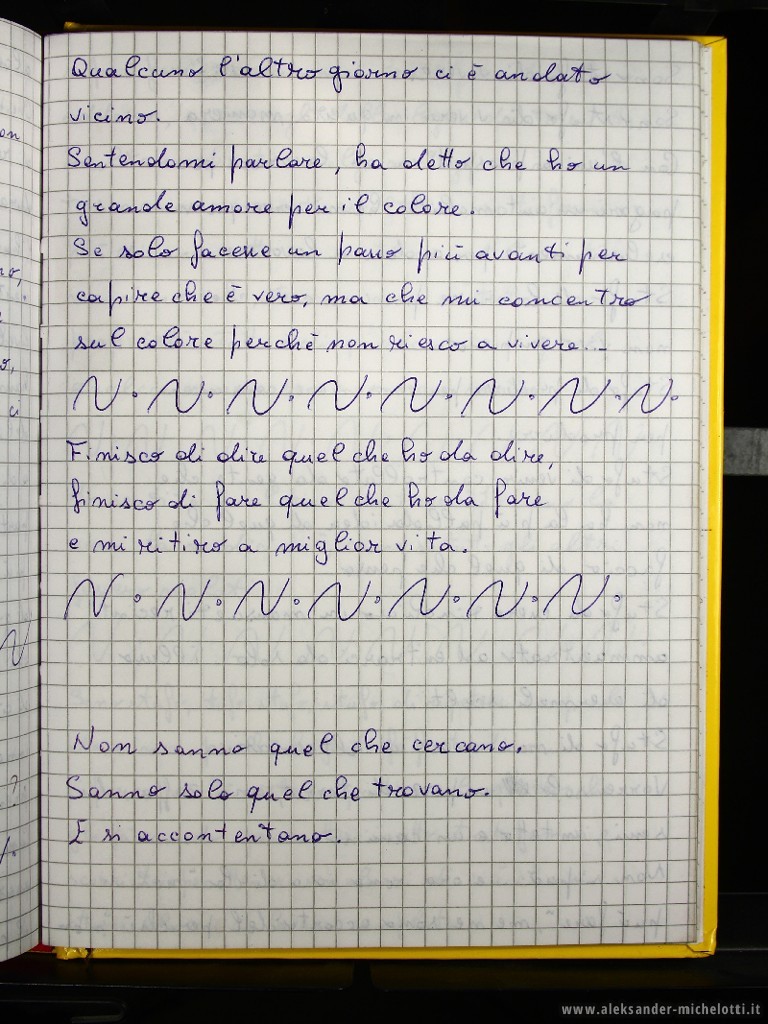 Qualcuno l'altro giorno ci è andato
vicino.
Sentendomi parlare, ha detto che ho un
grande amore per il colore.
Se solo facesse un passo più avanti per
capire che è vero, ma che mi concentro
sul colore perché non riesco a vivere...
Finisco di dire quel che ho da dire,
finisco di fare quel che ho da fare
e mi ritiro a miglior vita.
Non sanno quel che cercano.
Sanno solo quel che trovano.
E si accontentano.
on
ci
www.aleksander-michelotti.it